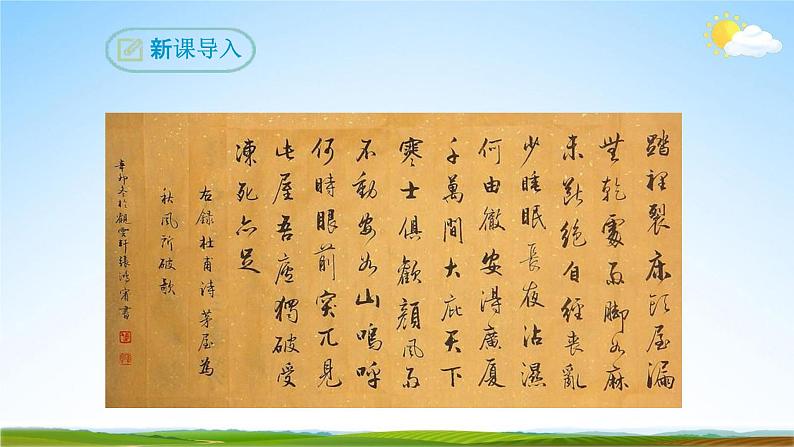 新课导入
踏裡裂床頭屋漏
無乾處雨脚如麻
未斷絕自經喪亂
少睡眠長夜沾濕
何由徹安得廣厦
千萬間大庇天下
寒士俱歡顏風雨
不動安如山嗚呼
何時眼前突兀見
此屋吾廬獨破受
凍死亦足
右錄杜甫詩茅屋為
秋風所破歌
辛卯冬於雲軒張鴻書